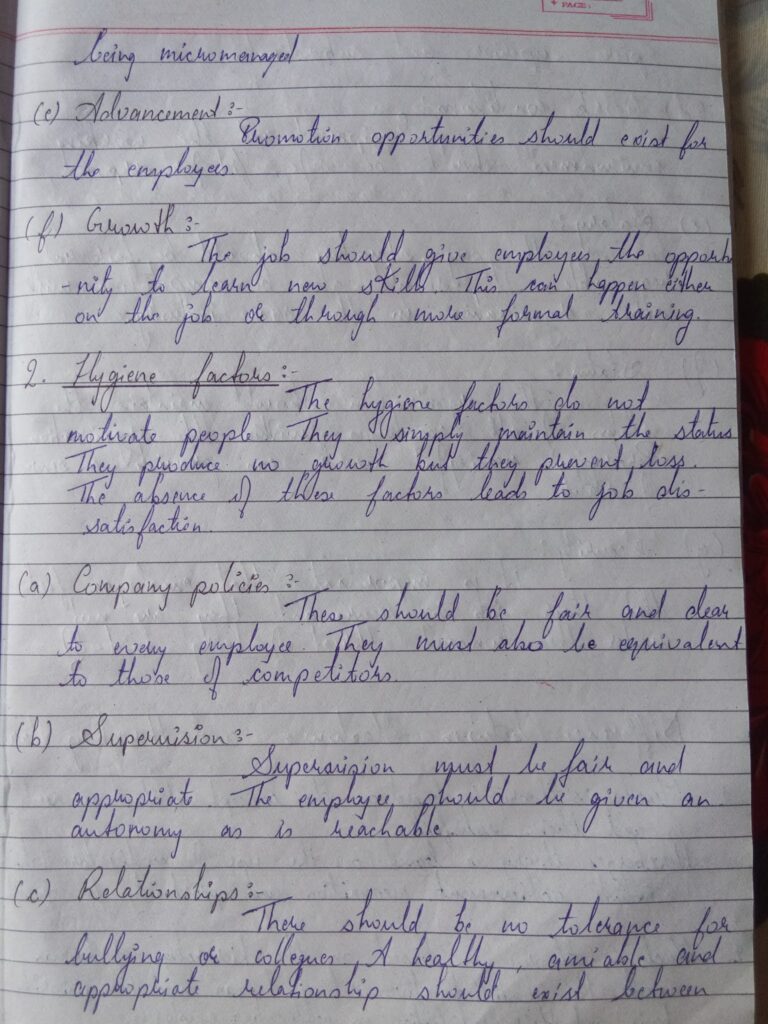 PAGE:
being micromanaged
(e) Advancement :-
Promotion opportunities should exist for
the employees.
(f) Growth :-
The job should give employees the opportu
-nity to learn new skills. This can happen either
on the job or through more formal training.
2. Hygiene factors :-
The hygiene factors do not
motivate people. They simply maintain the status
They produce no growth but they prevent loss.
The absence of these factors leads to job dis-
satisfaction.
(a) Company policies :-
These should be fair and clear
to every employee. They must also be equivalent
to those of competitors.
(b) Supervision :-
Supervision must be fair and
appropriate. The employee should be given an
autonomy as is reachable.
(c) Relationships :-
There should be no tolerance for
bullying or collegues. A healthy, amiable and
appropriate relationship should exist between